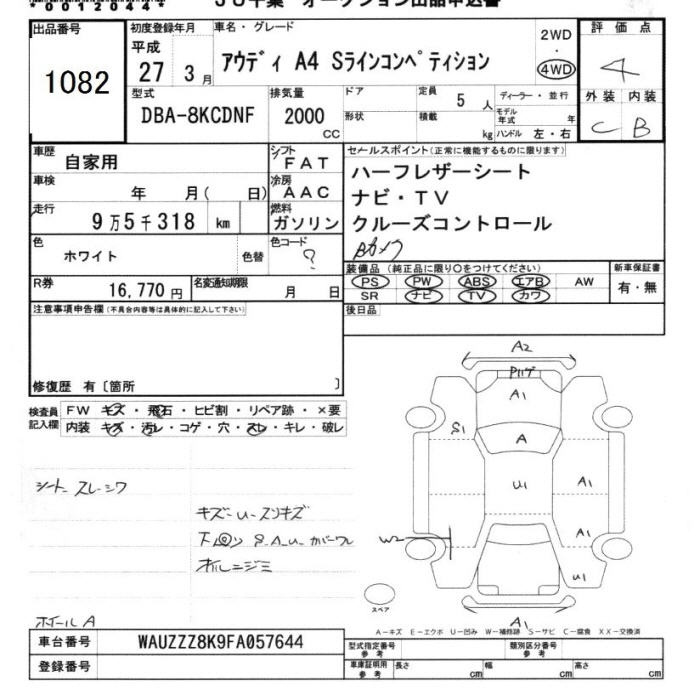 *00120444*
JU千葉 オークション出品申込書
出品番号
1082
初度登録年月
平成
27 3月
車名・グレード
アウディ A4 Sラインコンペティション
2WD
・
4WD
評価点
4
外装 内装
C B
型式
DBA-8KCDNF
排気量
2000
CC
ドア
定員
5 人
ディーラー・並行
形状
積載
kg
モデル年式 年
ハンドル 左・右
車歴
自家用
シフト
FAT
車検
年 月( 日)
冷房
AAC
走行
9万5千318 km
燃料
ガソリン
色
ホワイト
色替
色コード
?
R券
16,770 円
名変通知期限
月 日
セールスポイント(正常に機能するものに限ります)
ハーフレザーシート
ナビ・TV
クルーズコントロール
Bカメラ
装備品(純正品に限り○をつけてください)
PS PW ABS エアB AW
SR ナビ TV カワ
新車保証書
有・無
後日品
注意事項申告欄(不具合内容等は具体的に記入して下さい)
修復歴 有〔箇所 〕
検査員記入欄
FW キズ・飛石・ヒビ割・リペア跡・×要
内装 キズ・汚レ・コゲ・穴・スレ・キレ・破レ
シート スレ-シワ
キズ-U-スリキズ
下回り S-A-U-カバーワレ
オイルニジミ
ホイールA
A2
A1
S1
A
U1
A1
W2
A1
U1
A1
スペア
A-キズ E-エクボ U-凹み W-補修跡 S-サビ C-腐食 XX-交換済
車台番号
WAUZZZ8K9FA057644
登録番号
型式指定番号
参考
類別区分番号
参考
車庫証明用
参考
長さ cm
幅 cm
高さ cm